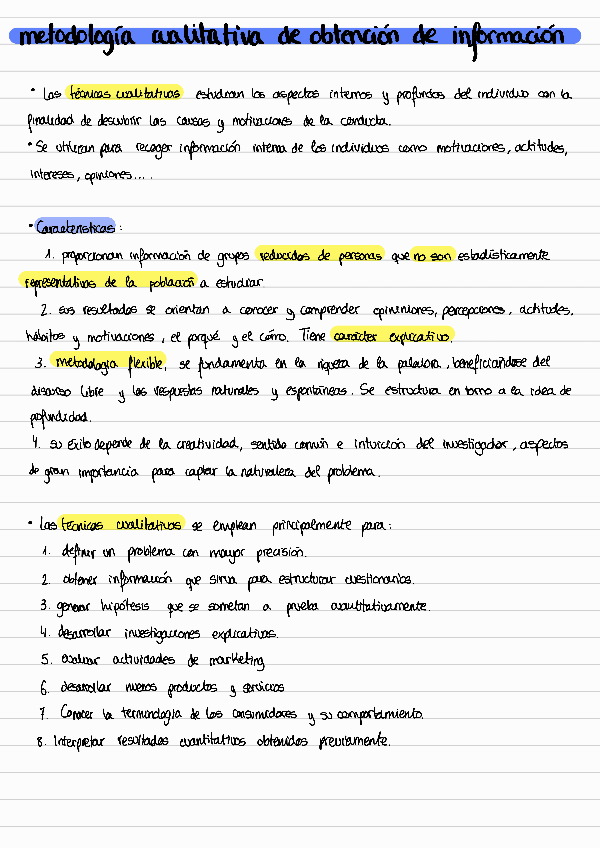 metodología cualitativa de obtención de información
• Las técnicas cualitativas estudian los aspectos internos y profundos del individuo con la
finalidad de descubrir las causas y motivaciones de la conducta.
• Se utilizan para recoger información interna de los individuos como motivaciones, actitudes,
intereses, opiniones....
• Características:
1. proporcionan información de grupos reducidos de personas que no son estadísticamente
representativos de la población a estudiar
2. sus resultados se orientan a conocer y comprender opininiones, percepciones, actitudes,
hábitos y motivaciones, el porqué y el cómo. Tiene carácter explicativo.
3. metodología flexible, se fundamenta en la riqueza de la palabra, beneficiándose del
discurso libre y las respuestas naturales y espontáneas. Se estructura en torno a la idea de
profundidad.
4. su éxito depende de la creatividad, sentido común e intuición del investigador, aspectos
de gran importancia para captar la naturaleza del problema.
• Las técnicas cualitativas se emplean principalmente para:
1. definir un problema con mayor precisión.
2. obtener información que sirva para estructurar cuestionarios.
3. generar hipótesis que se sometan a prueba cuantitativamente.
4. desarrollar investigaciones explicativas.
5. evaluar actividades de marketing
6. desarrollar nuevos productos y servicios
7. Conocer la terminología de los consumidores y su comportamiento.
8. Interpretar resultados cuantitativos obtenidos previamente.